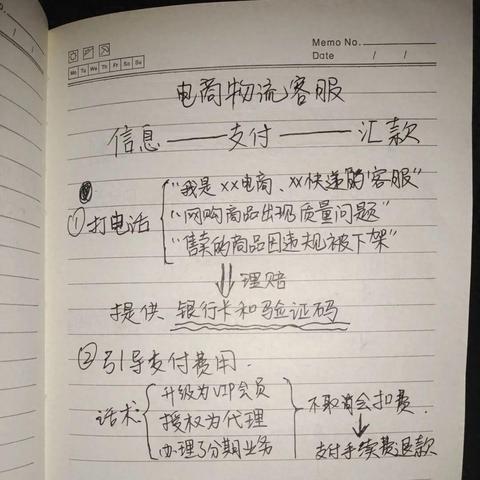 Memo No.
Mo Tu We Th Fr Sa Su
Date / /
电商物流客服
信息——支付——汇款
①打电话
"我是xx电商、xx快递的客服"
"网购商品出现质量问题"
"售卖的商品因违规被下架"
理赔
提供 银行卡和验证码
②引导支付费用.
话术
升级为VIP会员
授权为代理
办理了分期业务
不取消会扣费.
支付手续费退款